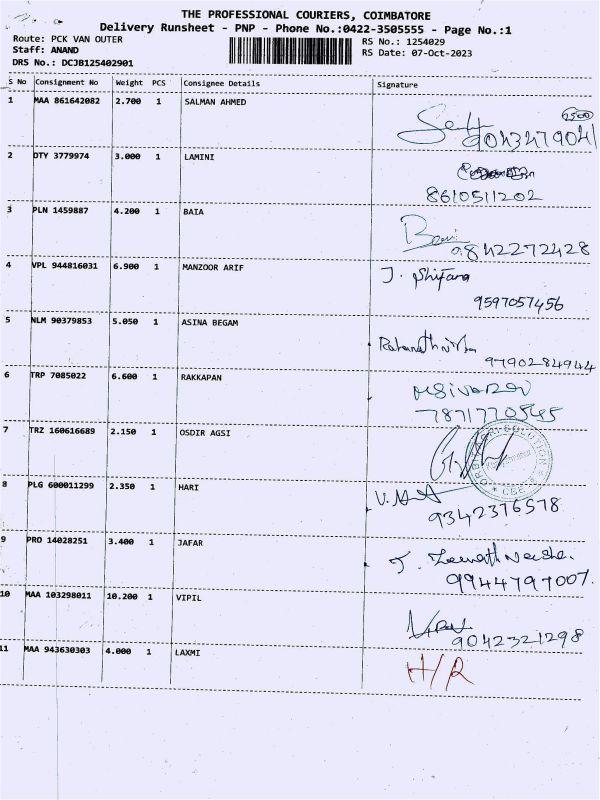 THE PROFESSIONAL COURIERS, COIMBATORE
Delivery Runsheet - PNP - Phone No.:0422-3505555 - Page No.:1
Route: PCK VAN OUTER
RS No.: 1254029
Staff: ANAND
RS Date: 07-Oct-2023
DRS No.: DCJB125402901
S No Consignment No Weight PCS Consignee Details Signature
1 MAA 861642082 2.700 1 SALMAN AHMED
2500
9043479041
2 DTY 3779974 3.000 1 LAMINI
8610511202
3 PLN 1459887 4.200 1 BAIA
9842272428
4 VPL 944816031 6.900 1 MANZOOR ARIF J. Shifana
9597057456
5 NLM 90379853 5.050 1 ASINA BEGAM
9790284944
6 TRP 7085022 6.600 1 RAKKAPAN
7871770545
7 TRZ 160616689 2.150 1 OSDIR AGSI
8 PLG 600011299 2.350 1 HARI
9342376578
9 PRO 14028251 3.400 1 JAFAR
9944797007.
10 MAA 103298011 10.200 1 VIPIL
9042321298
11 MAA 943630303 4.000 1 LAXMI H/R